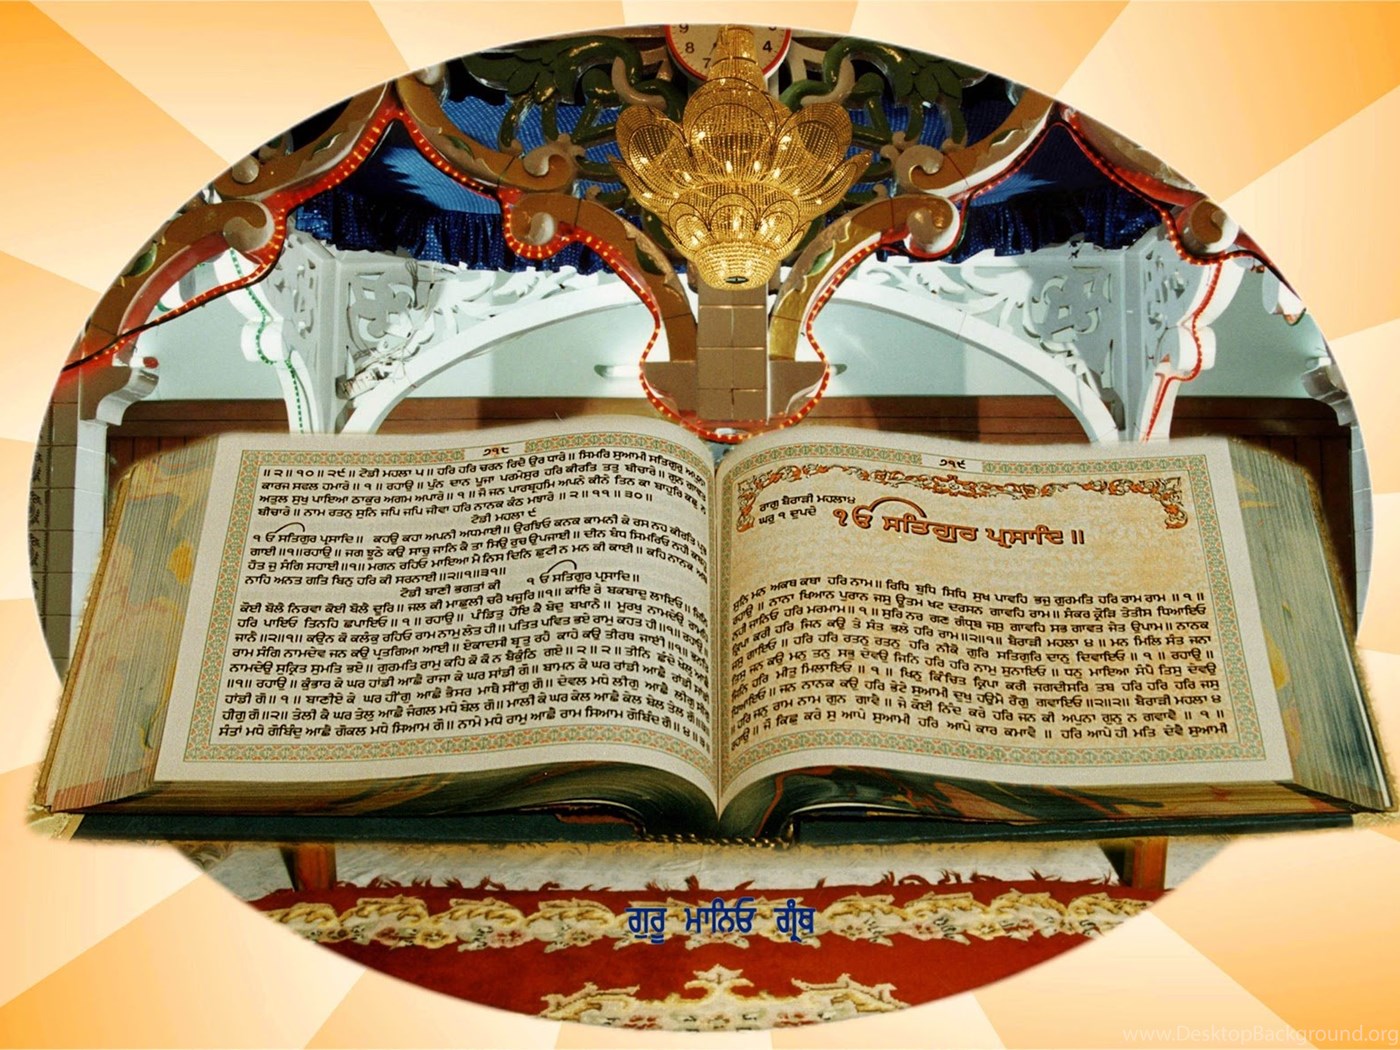 9
8
7
4
੭੧੮
॥੨॥੧੦॥੨੯॥ ਟੋਡੀ ਮਹਲਾ ੫॥ ਹਰਿ ਹਰਿ ਚਰਨ ਰਿਦੈ ਉਰ ਧਾਰੇ॥ ਸਿਮਰਿ ਸੁਆਮੀ ਸਤਿਗੁਰੁ ਅਪੁਨਾ
ਕਾਰਜ ਸਫਲ ਹਮਾਰੇ॥੧॥ ਰਹਾਉ॥ ਪੁੰਨ ਦਾਨ ਪੂਜਾ ਪਰਮੇਸੁਰ ਹਰਿ ਕੀਰਤਿ ਤਤੁ ਬੀਚਾਰੇ॥ ਗੁਨ ਗਾਵਤ
ਅਤੁਲ ਸੁਖੁ ਪਾਇਆ ਠਾਕੁਰ ਅਗਮ ਅਪਾਰੇ॥੧॥ ਜੋ ਜਨ ਪਾਰਬ੍ਰਹਮਿ ਅਪਨੇ ਕੀਨੇ ਤਿਨ ਕਾ ਬਾਹੁਰਿ ਕਛੁ ਨ
ਬੀਚਾਰੇ॥ ਨਾਮ ਰਤਨੁ ਸੁਨਿ ਜਪਿ ਜਪਿ ਜੀਵਾ ਹਰਿ ਨਾਨਕ ਕੰਠ ਮਝਾਰੇ॥੨॥੧੧॥੩੦॥
ਟੋਡੀ ਮਹਲਾ ੯
੧ਓ ਸਤਿਗੁਰ ਪ੍ਰਸਾਦਿ॥ ਕਹਉ ਕਹਾ ਅਪਨੀ ਅਧਮਾਈ॥ ਉਰਝਿਓ ਕਨਕ ਕਾਮਨੀ ਕੇ ਰਸ ਨਹ ਕੀਰਤਿ ਪ੍ਰਭ
ਗਾਈ॥੧॥ਰਹਾਉ॥ ਜਗ ਝੂਠੇ ਕਉ ਸਾਚੁ ਜਾਨਿ ਕੈ ਤਾ ਸਿਉ ਰੁਚ ਉਪਜਾਈ॥ ਦੀਨ ਬੰਧ ਸਿਮਰਿਓ ਨਹੀ ਕਬਹੂ
ਹੋਤ ਜੁ ਸੰਗਿ ਸਹਾਈ॥੧॥ ਮਗਨ ਰਹਿਓ ਮਾਇਆ ਮੈ ਨਿਸ ਦਿਨਿ ਛੁਟੀ ਨ ਮਨ ਕੀ ਕਾਈ॥ ਕਹਿ ਨਾਨਕ ਅਬ
ਨਾਹਿ ਅਨਤ ਗਤਿ ਬਿਨੁ ਹਰਿ ਕੀ ਸਰਨਾਈ॥੨॥੧॥੩੧॥
ਟੋਡੀ ਬਾਣੀ ਭਗਤਾਂ ਕੀ
੧ਓ ਸਤਿਗੁਰ ਪ੍ਰਸਾਦਿ॥
ਕੋਈ ਬੋਲੈ ਨਿਰਵਾ ਕੋਈ ਬੋਲੈ ਦੂਰਿ॥ ਜਲ ਕੀ ਮਾਛੁਲੀ ਚਰੈ ਖਜੂਰਿ॥੧॥ ਕਾਂਇ ਰੇ ਬਕਬਾਦੁ ਲਾਇਓ॥ ਜਿਨਿ
ਹਰਿ ਪਾਇਓ ਤਿਨਹਿ ਛਪਾਇਓ॥੧॥ ਰਹਾਉ॥ ਪੰਡਿਤੁ ਹੋਇ ਕੈ ਬੇਦੁ ਬਖਾਨੈ॥ ਮੂਰਖੁ ਨਾਮਦੇਉ ਰਾਮਹਿ
ਜਾਨੈ॥੨॥੧॥ ਕਉਨ ਕੋ ਕਲੰਕੁ ਰਹਿਓ ਰਾਮ ਨਾਮੁ ਲੇਤ ਹੀ॥ ਪਤਿਤ ਪਵਿਤ ਭਏ ਰਾਮੁ ਕਹਤ ਹੀ॥੧॥ ਰਹਾਉ॥
ਰਾਮ ਸੰਗਿ ਨਾਮਦੇਵ ਜਨ ਕਉ ਪ੍ਰਤਗਿਆ ਆਈ॥ ਏਕਾਦਸੀ ਬ੍ਰਤੁ ਰਹੈ ਕਾਹੇ ਕਉ ਤੀਰਥ ਜਾਈਂ॥੧॥ ਭਨਤਿ
ਨਾਮਦੇਉ ਸੁਕ੍ਰਿਤ ਸੁਮਤਿ ਭਏ॥ ਗੁਰਮਤਿ ਰਾਮੁ ਕਹਿ ਕੋ ਕੋ ਨ ਬੈਕੁੰਠਿ ਗਏ॥੨॥੨॥ ਤੀਨਿ ਛੰਦੇ ਖੇਲੁ ਆਛੈ
॥੧॥ ਰਹਾਉ॥ ਕੁੰਭਾਰ ਕੇ ਘਰ ਹਾਂਡੀ ਆਛੈ ਰਾਜਾ ਕੇ ਘਰ ਸਾਂਡੀ ਗੋ॥ ਬਾਮਨ ਕੇ ਘਰ ਰਾਂਡੀ ਆਛੈ ਰਾਂਡੀ ਸਾਂਡੀ
ਹਾਂਡੀ ਗੋ॥੧॥ ਬਾਣੀਏ ਕੇ ਘਰ ਹੀਂਗੁ ਆਛੈ ਭੈਸਰ ਮਾਥੈ ਸੀਂਗੁ ਗੋ॥ ਦੇਵਲ ਮਧੇ ਲੀਗੁ ਆਛੈ ਲੀਗੁ ਸੀਗੁ
ਹੀਗੁ ਗੋ॥੨॥ ਤੇਲੀ ਕੈ ਘਰ ਤੇਲੁ ਆਛੈ ਜੰਗਲ ਮਧੇ ਬੇਲ ਗੋ॥ ਮਾਲੀ ਕੇ ਘਰ ਕੇਲ ਆਛੈ ਕੇਲ ਬੇਲ ਤੇਲ ਗੋ॥੩॥
ਸੰਤਾਂ ਮਧੇ ਗੋਬਿੰਦੁ ਆਛੈ ਗੋਕਲ ਮਧੇ ਸਿਆਮ ਗੋ॥ ਨਾਮੇ ਮਧੇ ਰਾਮੁ ਆਛੈ ਰਾਮ ਸਿਆਮ ਗੋਬਿੰਦ ਗੋ॥੪॥੩॥
੭੧੯
ਰਾਗੁ ਬੈਰਾੜੀ ਮਹਲਾ ੪
ਘਰੁ ੧ ਦੁਪਦੇ
੧ਓ ਸਤਿਗੁਰ ਪ੍ਰਸਾਦਿ॥
ਸੁਨਿ ਮਨ ਅਕਥ ਕਥਾ ਹਰਿ ਨਾਮ॥ ਰਿਧਿ ਬੁਧਿ ਸਿਧਿ ਸੁਖ ਪਾਵਹਿ ਭਜੁ ਗੁਰਮਤਿ ਹਰਿ ਰਾਮ ਰਾਮ॥੧॥
ਰਹਾਉ॥ ਨਾਨਾ ਖਿਆਨ ਪੁਰਾਨ ਜਸੁ ਊਤਮ ਖਟ ਦਰਸਨ ਗਾਵਹਿ ਰਾਮ॥ ਸੰਕਰ ਕ੍ਰੋੜਿ ਤੇਤੀਸ ਧਿਆਇਓ
ਨਹੀ ਜਾਨਿਓ ਹਰਿ ਮਰਮਾਮ॥੧॥ ਸੁਰਿ ਨਰ ਗਣ ਗੰਧ੍ਰਬ ਜਸੁ ਗਾਵਹਿ ਸਭ ਗਾਵਤ ਜੇਤ ਉਪਾਮ॥ ਨਾਨਕ
ਕ੍ਰਿਪਾ ਕਰੀ ਹਰਿ ਜਿਨ ਕਉ ਤੇ ਸੰਤ ਭਲੇ ਹਰਿ ਰਾਮ॥੨॥੧॥ ਬੈਰਾੜੀ ਮਹਲਾ ੪॥ ਮਨ ਮਿਲਿ ਸੰਤ ਜਨਾ
ਜਸੁ ਗਾਇਓ॥ ਹਰਿ ਹਰਿ ਰਤਨੁ ਰਤਨੁ ਹਰਿ ਨੀਕੋ ਗੁਰਿ ਸਤਿਗੁਰਿ ਦਾਨੁ ਦਿਵਾਇਓ॥੧॥ ਰਹਾਉ॥
ਤਿਸੁ ਜਨ ਕਉ ਮਨੁ ਤਨੁ ਸਭੁ ਦੇਵਉ ਜਿਨਿ ਹਰਿ ਹਰਿ ਨਾਮੁ ਸੁਨਾਇਓ॥ ਧਨੁ ਮਾਇਆ ਸੰਪੈ ਤਿਸੁ ਦੇਵਉ
ਜਿਨਿ ਹਰਿ ਮੀਤੁ ਮਿਲਾਇਓ॥੧॥ ਖਿਨੁ ਕਿੰਚਿਤ ਕ੍ਰਿਪਾ ਕਰੀ ਜਗਦੀਸਰਿ ਤਬ ਹਰਿ ਹਰਿ ਹਰਿ ਜਸੁ
ਧਿਆਇਓ॥ ਜਨ ਨਾਨਕ ਕਉ ਹਰਿ ਭੇਟੇ ਸੁਆਮੀ ਦੁਖੁ ਹਉਮੈ ਰੋਗੁ ਗਵਾਇਓ॥੨॥੨॥ ਬੈਰਾੜੀ ਮਹਲਾ ੪
॥ ਹਰਿ ਜਨੁ ਰਾਮ ਨਾਮ ਗੁਨ ਗਾਵੈ॥ ਜੇ ਕੋਈ ਨਿੰਦ ਕਰੇ ਹਰਿ ਜਨ ਕੀ ਅਪੁਨਾ ਗੁਨੁ ਨ ਗਵਾਵੈ॥੧॥
ਰਹਾਉ॥ ਜੋ ਕਿਛੁ ਕਰੇ ਸੁ ਆਪੇ ਸੁਆਮੀ ਹਰਿ ਆਪੇ ਕਾਰ ਕਮਾਵੈ॥ ਹਰਿ ਆਪੇ ਹੀ ਮਤਿ ਦੇਵੈ ਸੁਆਮੀ
ਗੁਰੂ ਮਾਨਿਓ ਗ੍ਰੰਥ
www.DesktopBackground.org